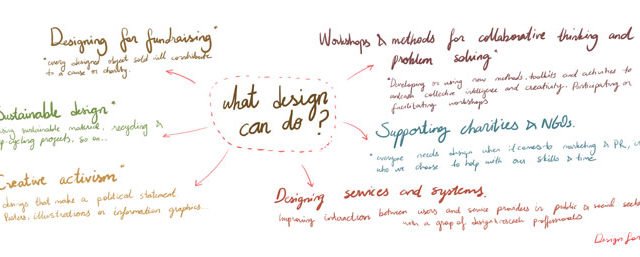 Designing for fundraising*
*every designed object sold will contribute
to a cause or charity.
Workshops & methods for collaborative thinking and
problem solving*
*Developing or using new methods, toolkits and activities to
unleash collective intelligence and creativity. Participating or
facilitating workshops
what design
can do?
Sustainable design*
using sustainable material, recycling &
up-cycling projects. So on...
Supporting charities & NGOs.
*everyone needs design when it comes to marketing & PR,
who we choose to help with our skills & time
Creative activism*
designs that make a political statement
Posters, illustrations or information graphics...
Designing services and systems.
improving interaction between users and service providers in public & social sector
with a group of design & research professionals
Design for